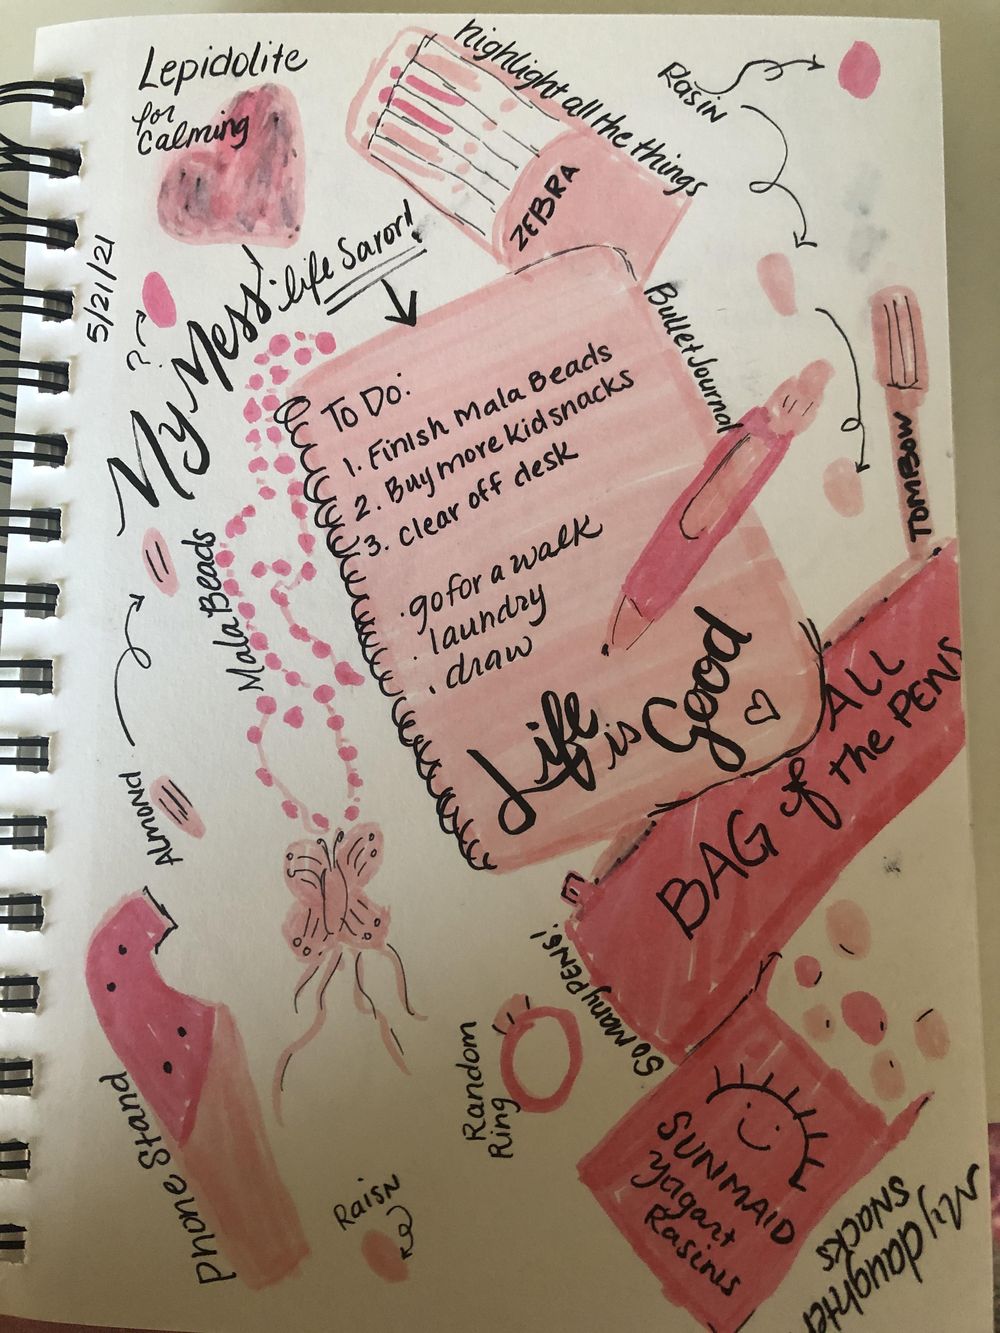 Lepidolite
for
Calming
highlight all the things
ZEBRA
Raisin
5/21/21
?
My Mess!
life Savor!
Bullet Journal
To Do:
1. Finish Mala Beads
2. Buy more kid snacks
3. Clear off desk
· go for a walk
· laundry
· draw
Life is Good
TOMBOW
Mala Beads
Almond
ALL
BAG of the PENS
So Many PENS!
Phone Stand
Random
Ring
Raisn
SUNMAID
Yogart
Rasinis
My daughter
snacks